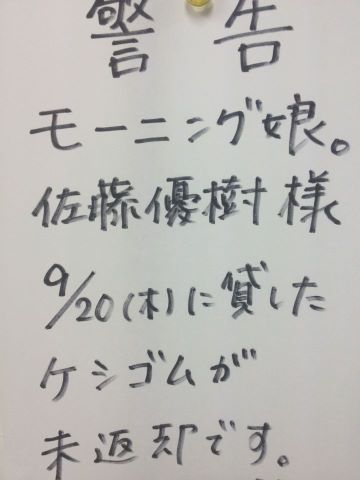 警告
モーニング娘。
佐藤優樹様
9/20(木)に貸した
ケシゴムが
未返却です。